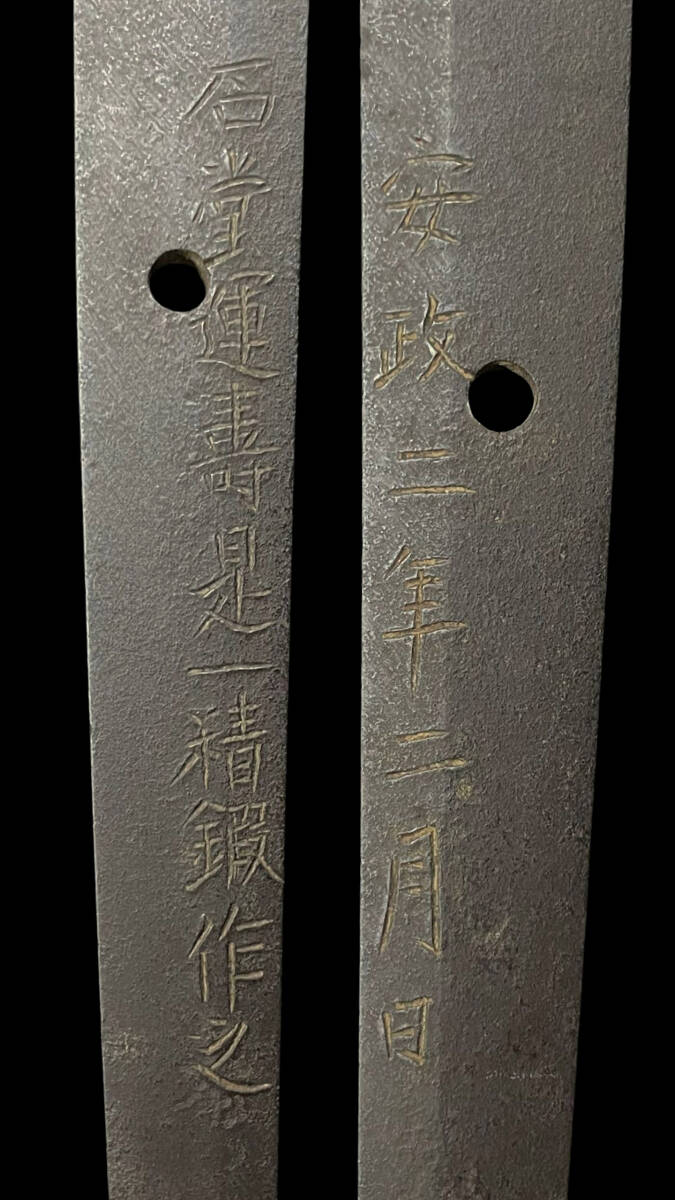 石堂運壽是一精鍛作之
安政二年二月日